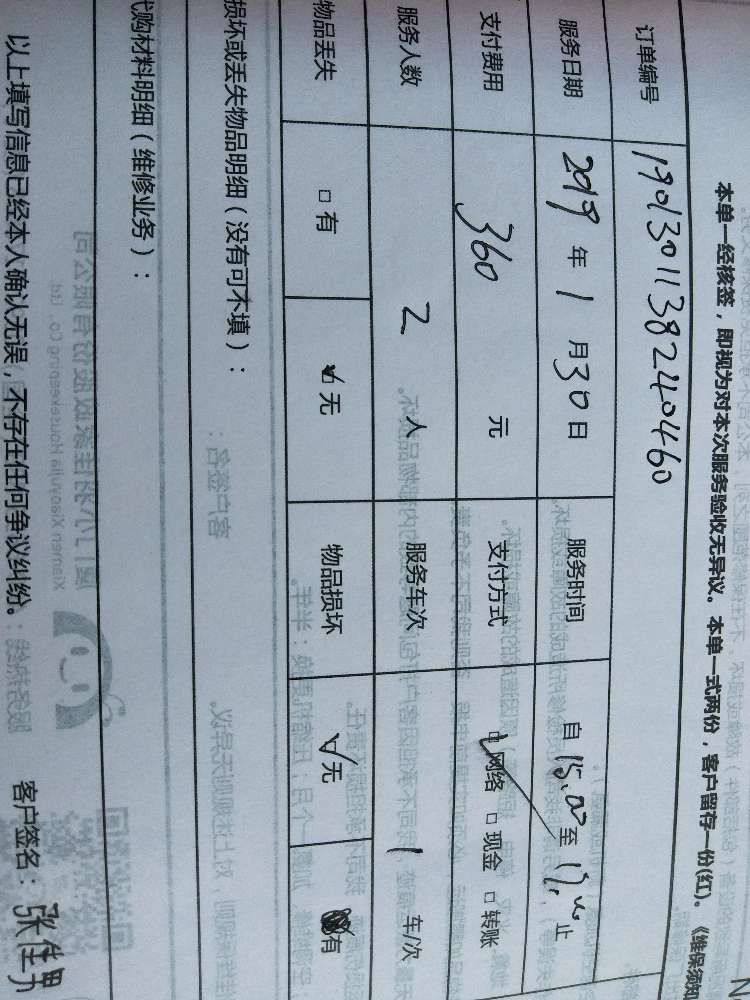 本单一经核签，即视为对本次服务验收无异议。本单一式两份，客户留存一份(红)。《维保须知
订单编号 1901301138240460
服务日期 2019 年 1 月 30 日 服务时间 自 15:00 至 17: 止
支付费用 360 元 支付方式 ☑ 网络 □ 现金 □ 转账
服务人数 2 人 服务车次 1 车/次
物品丢失 □ 有 ☑ 无 物品损坏 ☑ 无 有
损坏或丢失物品明细（没有可不填）：
代购材料明细（维修业务）：
以上填写信息已经本人确认无误，不存在任何争议纠纷。 客户签名：张佳男